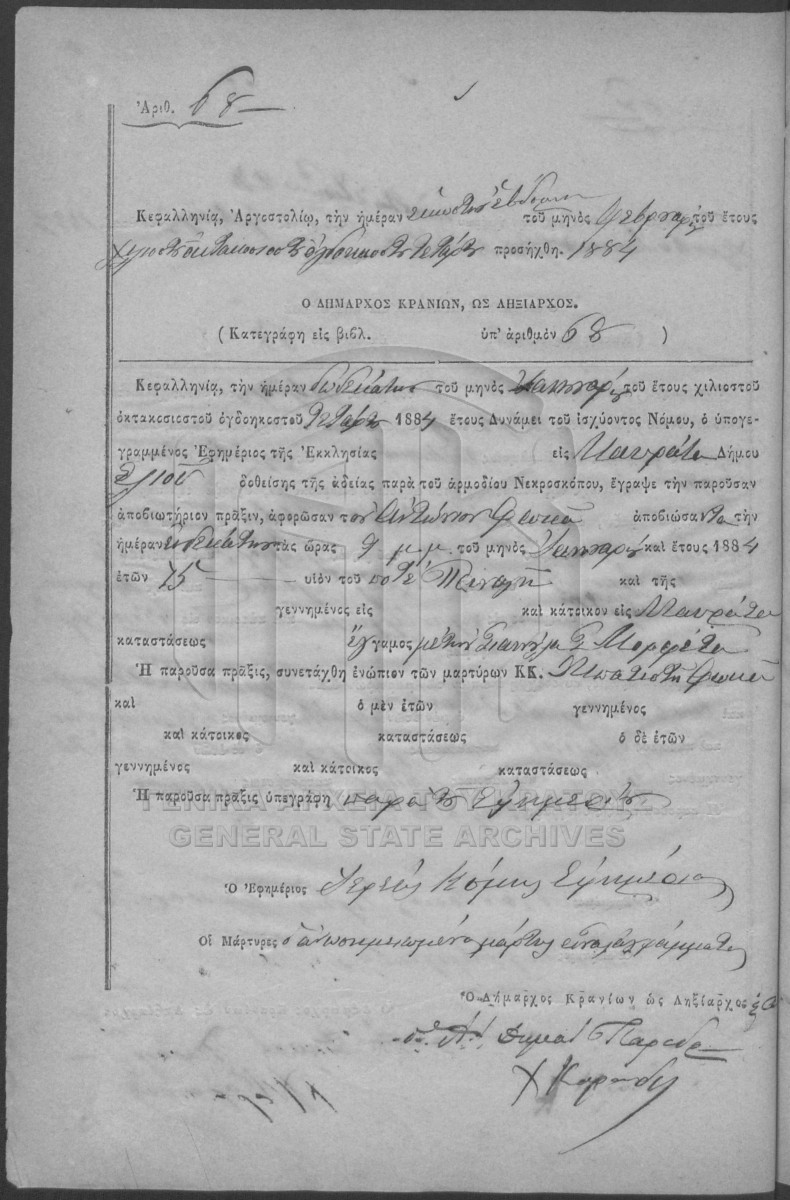 Ἀριθ. 68
Κεφαλληνίᾳ, Ἀργοστολίῳ, τὴν ἡμέραν εἰκοστην ἑβδόμην τοῦ μηνὸς Φεβρουαρ. τοῦ ἔτους
χιλιοστοῦ ὀκτακοσιοστοῦ ὀγδοηκοστοῦ τετάρτου προσήχθη. 1884
Ο ΔΗΜΑΡΧΟΣ ΚΡΑΝΙΩΝ, ΩΣ ΛΗΞΙΑΡΧΟΣ.
( Κατεγράφη εἰς βιβλ. ὑπ' ἀριθμὸν 68 )
Κεφαλληνίᾳ, τὴν ἡμέραν δωδεκάτην τοῦ μηνὸς Ἰανουαρ. τοῦ ἔτους χιλιοστοῦ
ὀκτακοσιοστοῦ ὀγδοηκοστοῦ τετάρτου 1884 ἔτους Δυνάμει τοῦ ἰσχύοντος Νόμου, ὁ ὑπογε-
γραμμένος Ἐφημέριος τῆς Ἐκκλησίας εἰς Μαυράτα Δήμου
Ἐλιοῦ δοθείσης τῆς ἀδείας παρὰ τοῦ ἁρμοδίου Νεκροσκόπου, ἔγραψε τὴν παροῦσαν
ἀποβιωτήριον πρᾶξιν, ἀφορῶσαν τον Ἀντώνιον Φωκᾶ ἀποβιώσαντα τὴν
ἡμέραν ἑνδεκάτην τὰς ὥρας 9 μ.μ. τοῦ μηνὸς Ἰανουαρ. καὶ ἔτους 1884
ἐτῶν 75 υἱὸν τοῦ ποτὲ καὶ τῆς
γεννημένος εἰς καὶ κάτοικον εἰς Μαυράτα
καταστάσεως ἔγγαμος με την
Ἡ παροῦσα πρᾶξις, συνετάχθη ἐνώπιον τῶν μαρτύρων ΚΚ. Μπατιστη Φωκᾶ
καὶ ὁ μὲν ἐτῶν γεννημένος
καὶ κάτοικος καταστάσεως ὁ δὲ ἐτῶν
γεννημένος καὶ κάτοικος καταστάσεως
Ἡ παροῦσα πρᾶξις ὑπεγράφη παρὰ τοῦ Ἐφημερίου
ΓΕΝΙΚΑ ΑΡΧΕΙΑ ΤΟΥ ΚΡΑΤΟΥΣ
GENERAL STATE ARCHIVES
Ὁ Ἐφημέριος Ἱερεὺς Κόμης Εφημέριος
Οἱ Μάρτυρες ὁ μάρτυς εἶναι ἀγράμματος
Ὁ Δήμαρχος Κρανίων ὡς Ληξίαρχος